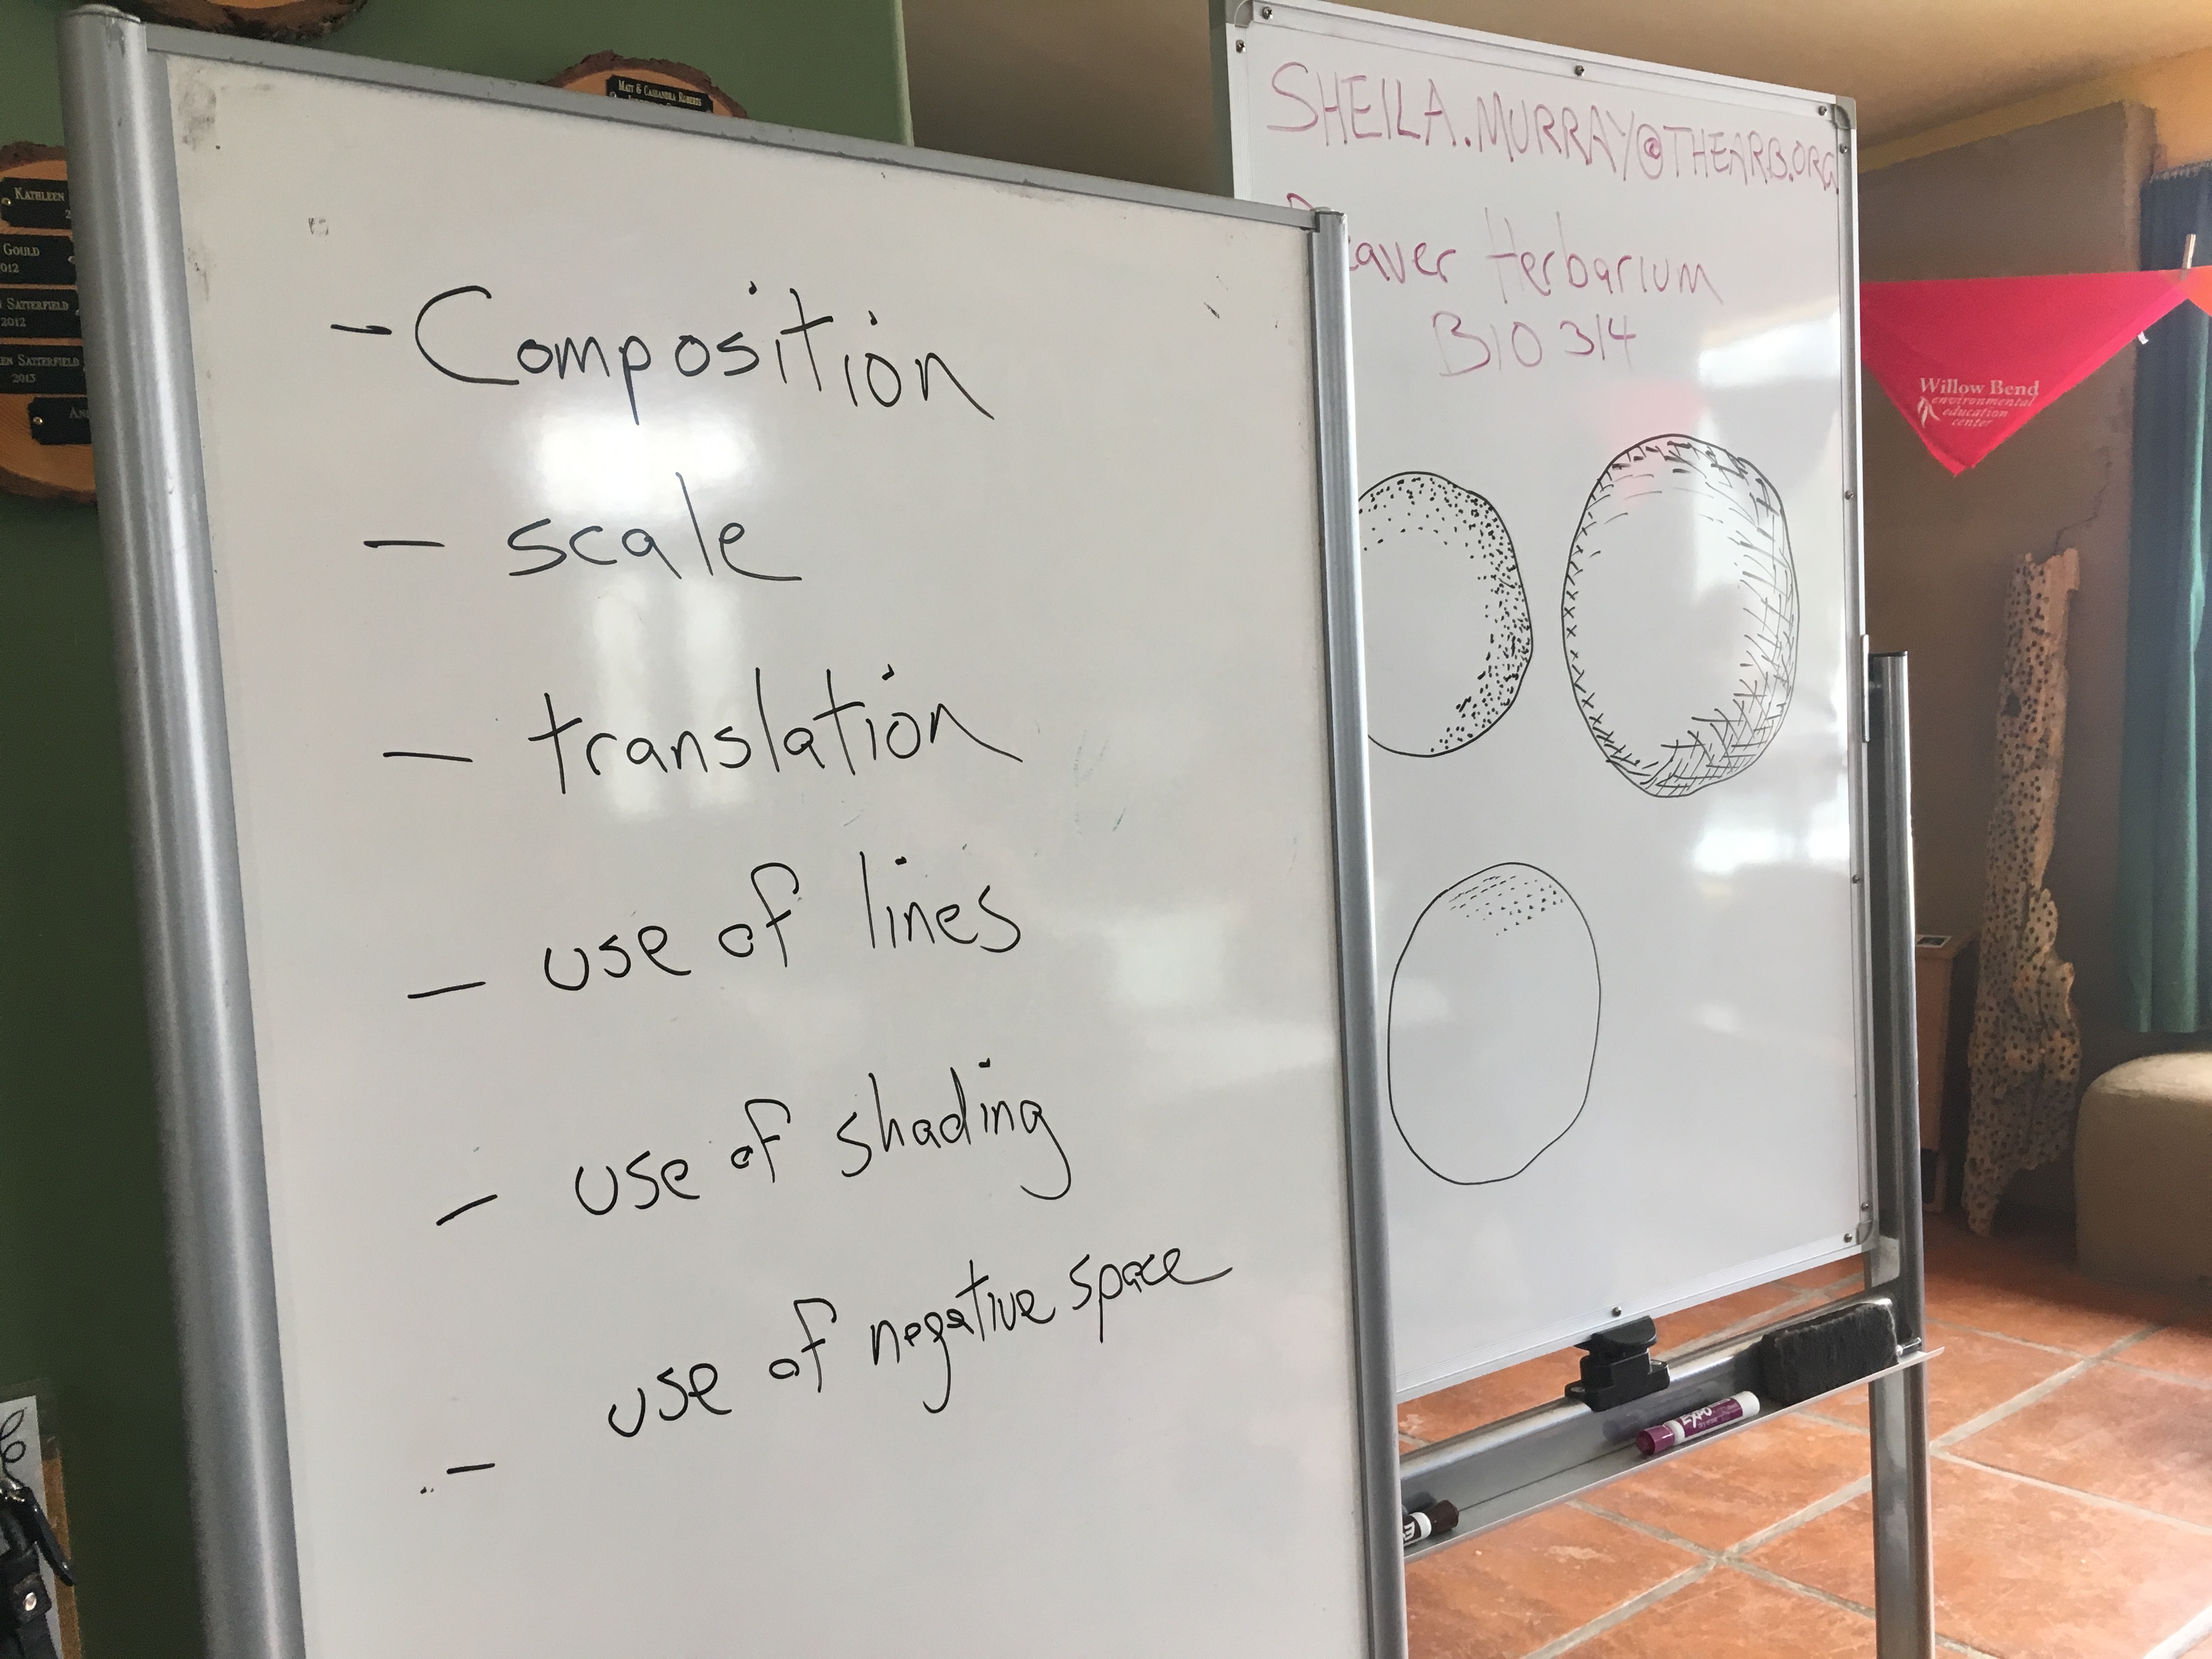 - Composition
- scale
- translation
- use of lines
- use of shading
- use of negative space
SHEILA.MURRAY@THEARB.ORG
eaver Herbarium
BIO 314
Willow Bend
environmental
education
center
MATT & CASSANDRA ROBERTS
KATHLEEN
GOULD
012
SATTERFIELD
2012
EN SATTERFIELD
2013
EXPO